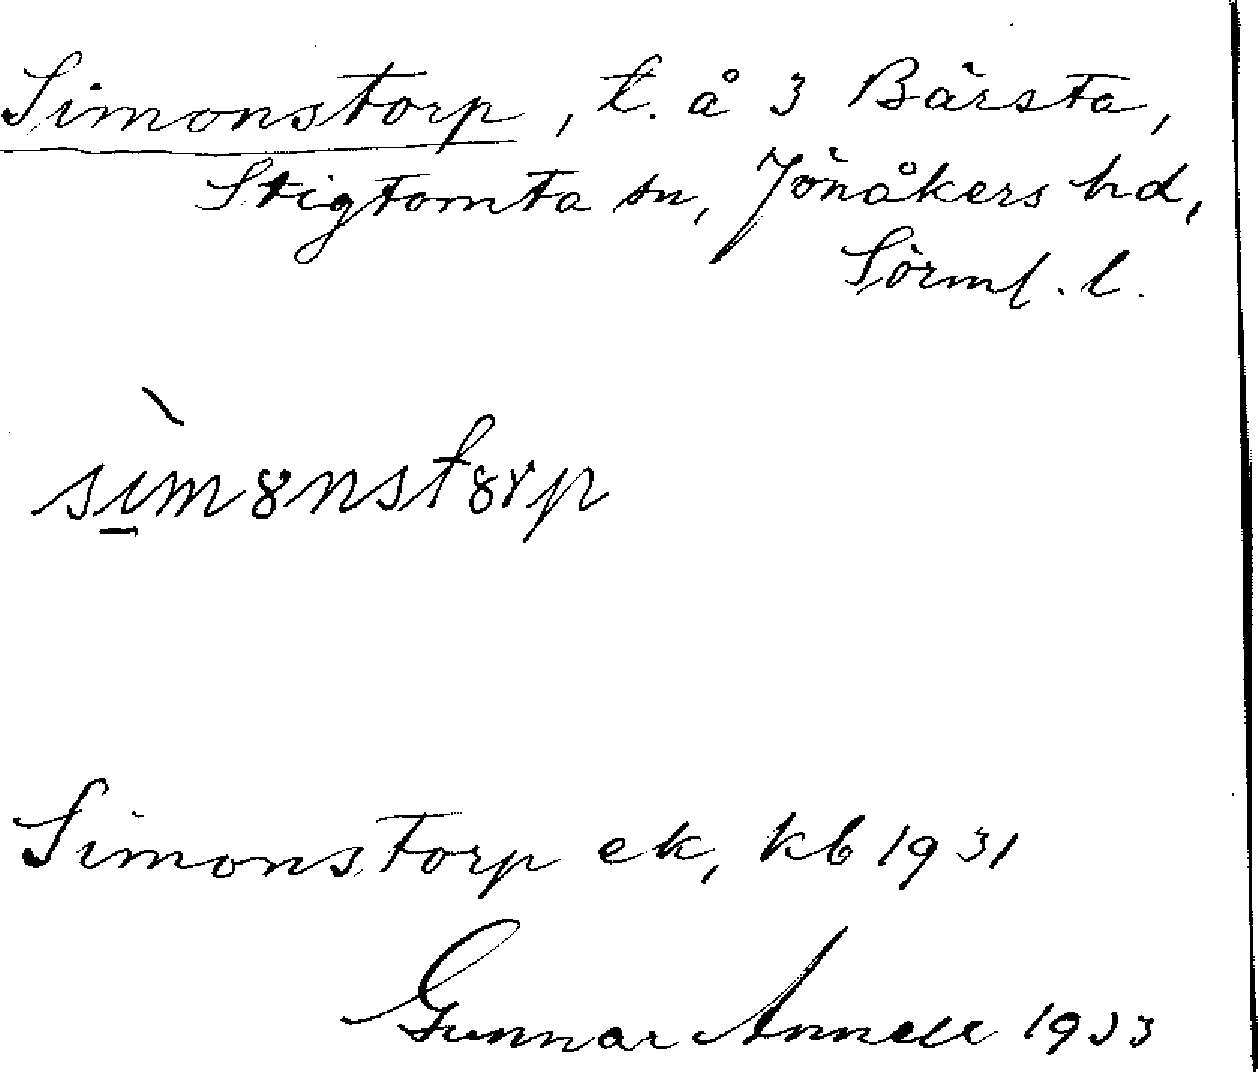 Simonstorp, t. å 3 Bärsta,
Stigtomta sn, Jönåkers hd,
Sörml. l.
sìmȣnstȣrp
Simonstorp ek, kb 1931
Gunnar Annell 1933